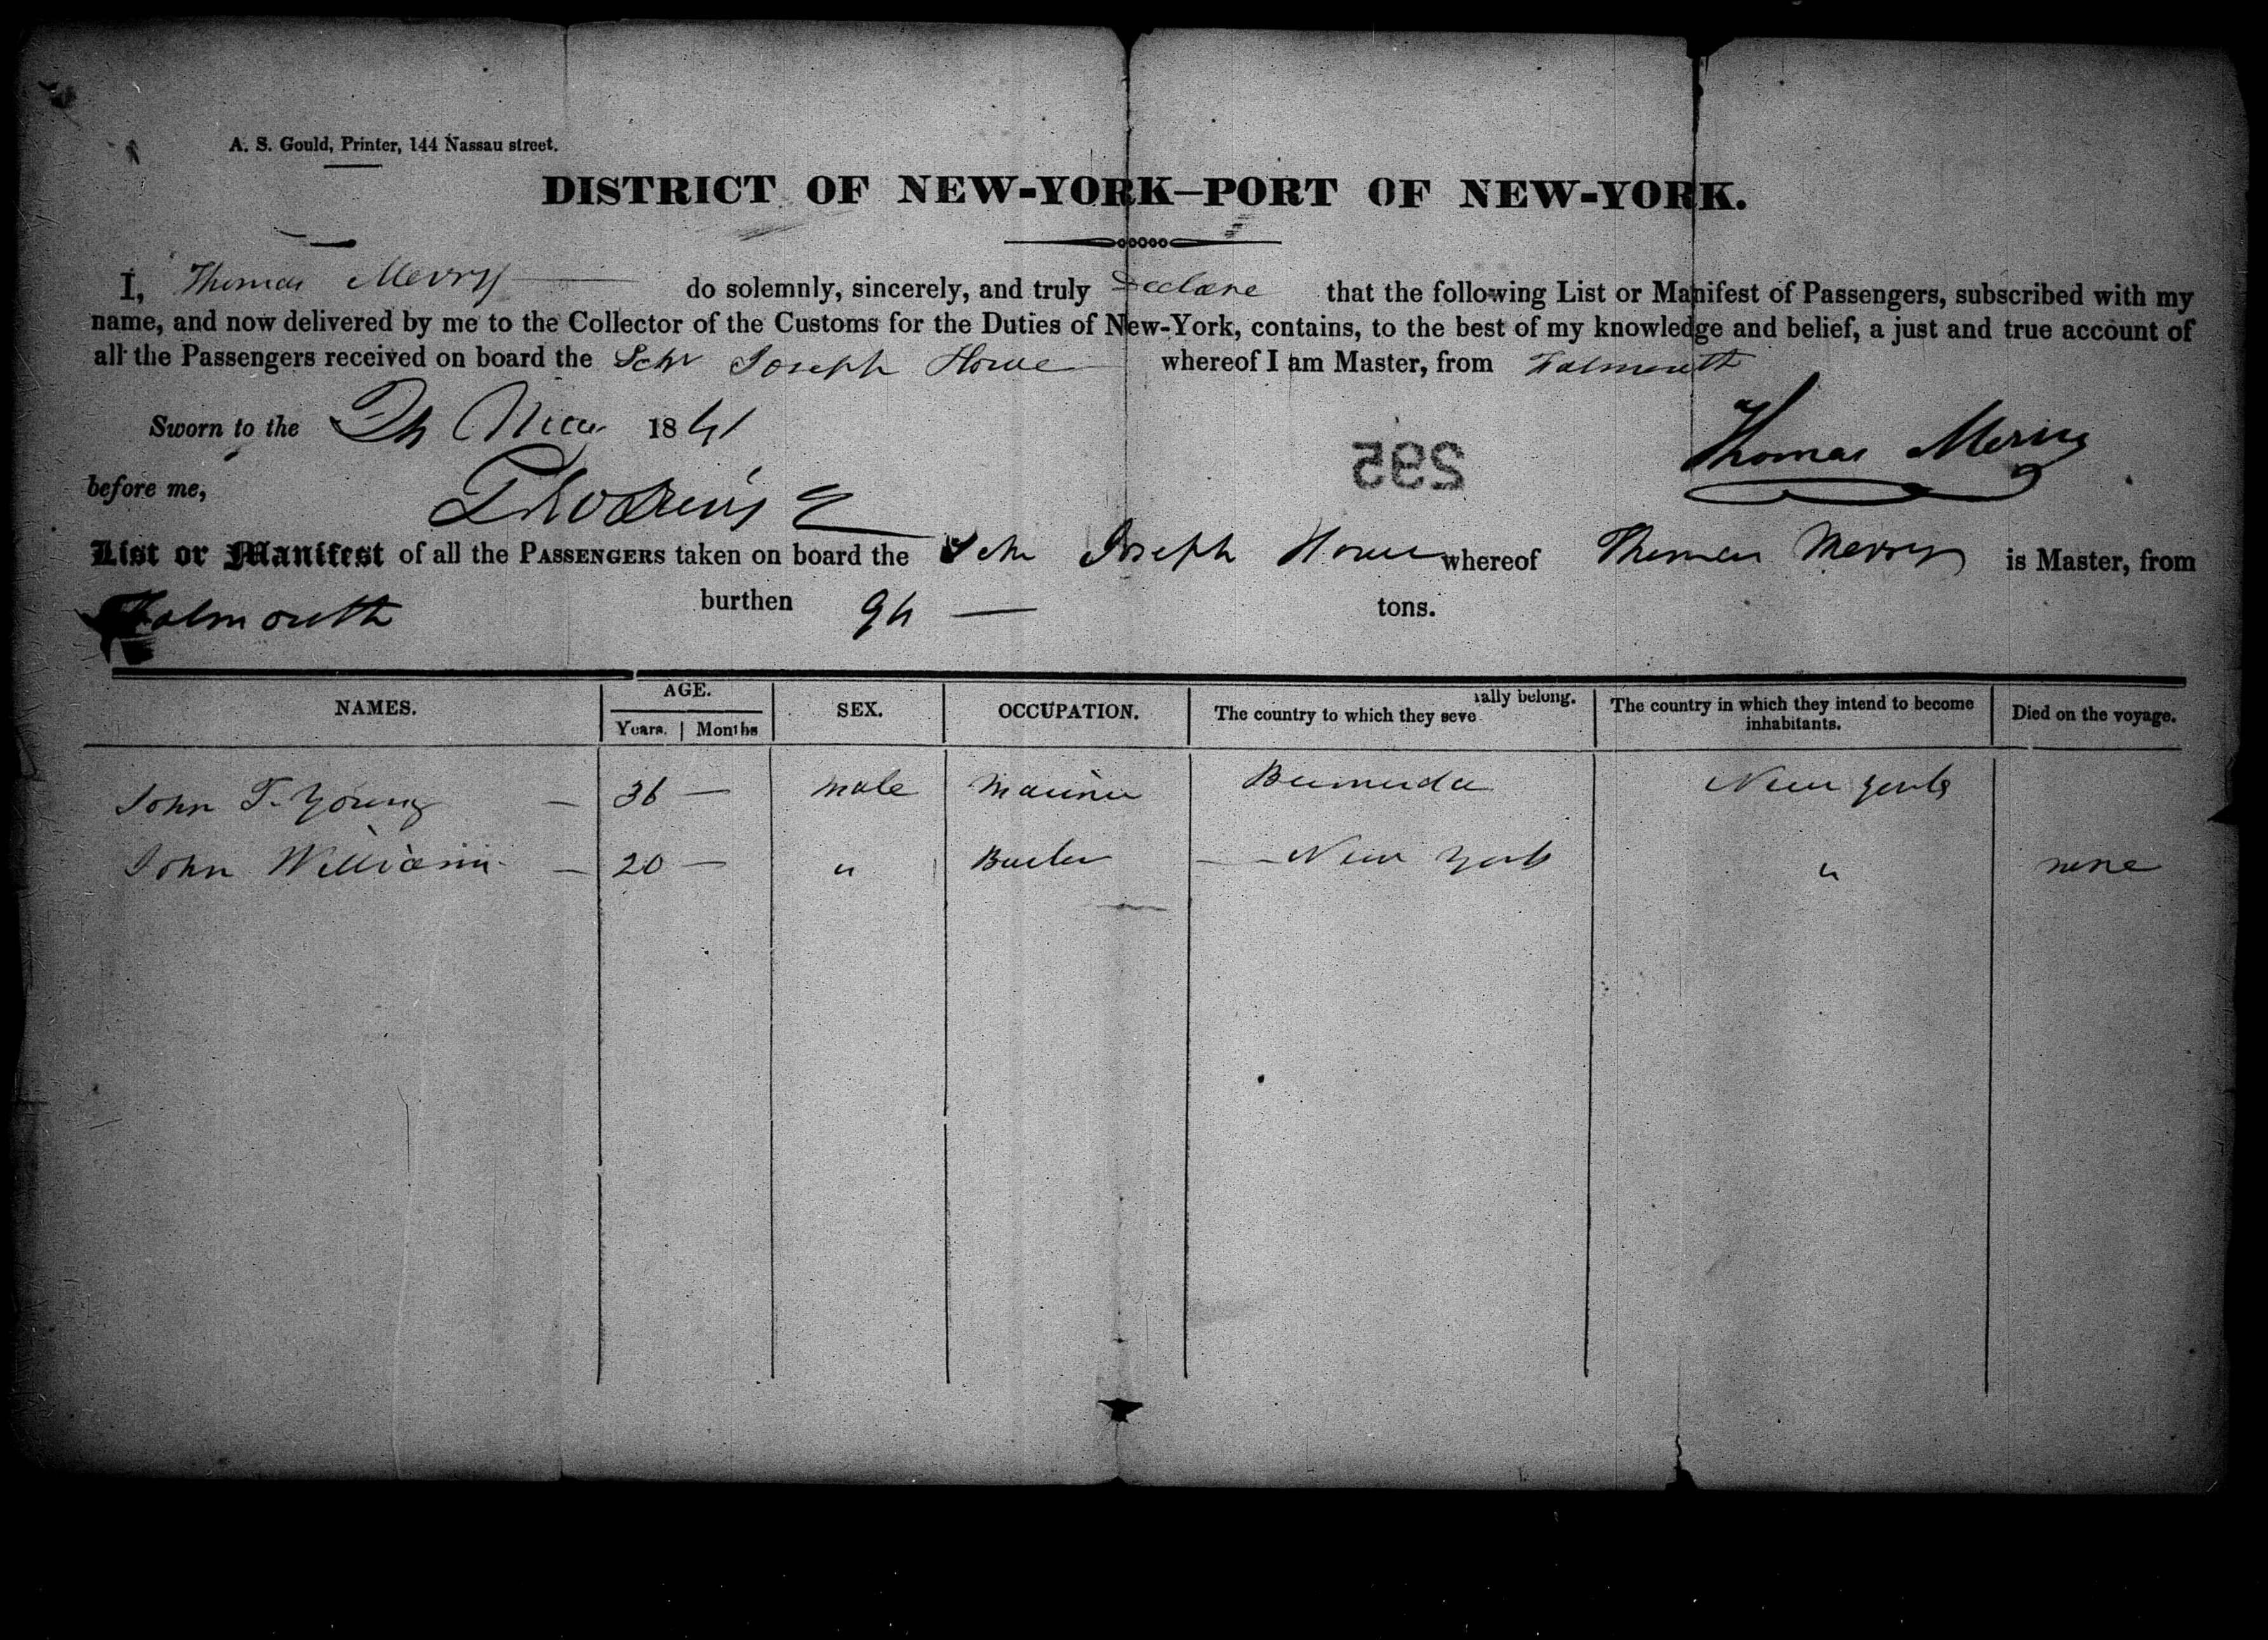 A. S. Gould, Printer, 144 Nassau street.
DISTRICT OF NEW-YORK—PORT OF NEW-YORK.
I, Thomas Merry do solemnly, sincerely, and truly Declare that the following List or Manifest of Passengers, subscribed with my
name, and now delivered by me to the Collector of the Customs for the Duties of New-York, contains, to the best of my knowledge and belief, a just and true account of
all the Passengers received on board the Schr Joseph Howe whereof I am Master, from Falmouth
Sworn to the 1841
Thomas Merry
295
before me,
List or Manifest of all the PASSENGERS taken on board the Schr Joseph Howe whereof Thomas Merry is Master, from
Falmouth burthen 94 — tons.
NAMES. AGE. Years. | Months SEX. OCCUPATION. The country to which they severally belong. The country in which they intend to become inhabitants. Died on the voyage.
John T. Young — 36 — male Mariner Bermuda New York
John William — 20 — " — New York " none